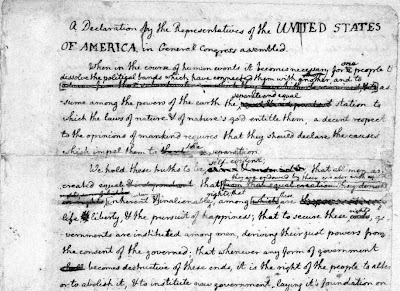 A Declaration by the Representatives of the UNITED STATES
OF AMERICA, in General Congress assembled.
When in the course of human events it becomes necessary for a people to
one
dissolve the political bands which have connected them with another, and to
as
separate and equal
sume among the powers of the earth the station to
which the laws of nature & of nature's god entitle them, a decent respect
to the opinions of mankind requires that they should declare the causes
which impel them to the separation.
We hold these truths to be
self evident;
that all men are
created equal that they are endowed by their creator with
inherent & inalienable rights; that among these are
life, liberty, & the pursuit of happiness; that to secure these rights, go
vernments are instituted among men, deriving their just powers from
the consent of the governed; that whenever any form of government
becomes destructive of these ends, it is the right of the people to alter
or to abolish it, & to institute new government, laying it's foundation on